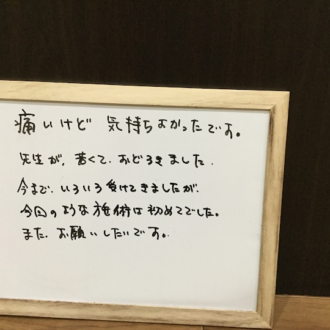 痛いけど 気持ちよかったです。
先生が、若くて、おどろきました.
今まで、いろいろ受けてきましたが、
今回のような施術は初めてでした。
また、お願いしたいです。